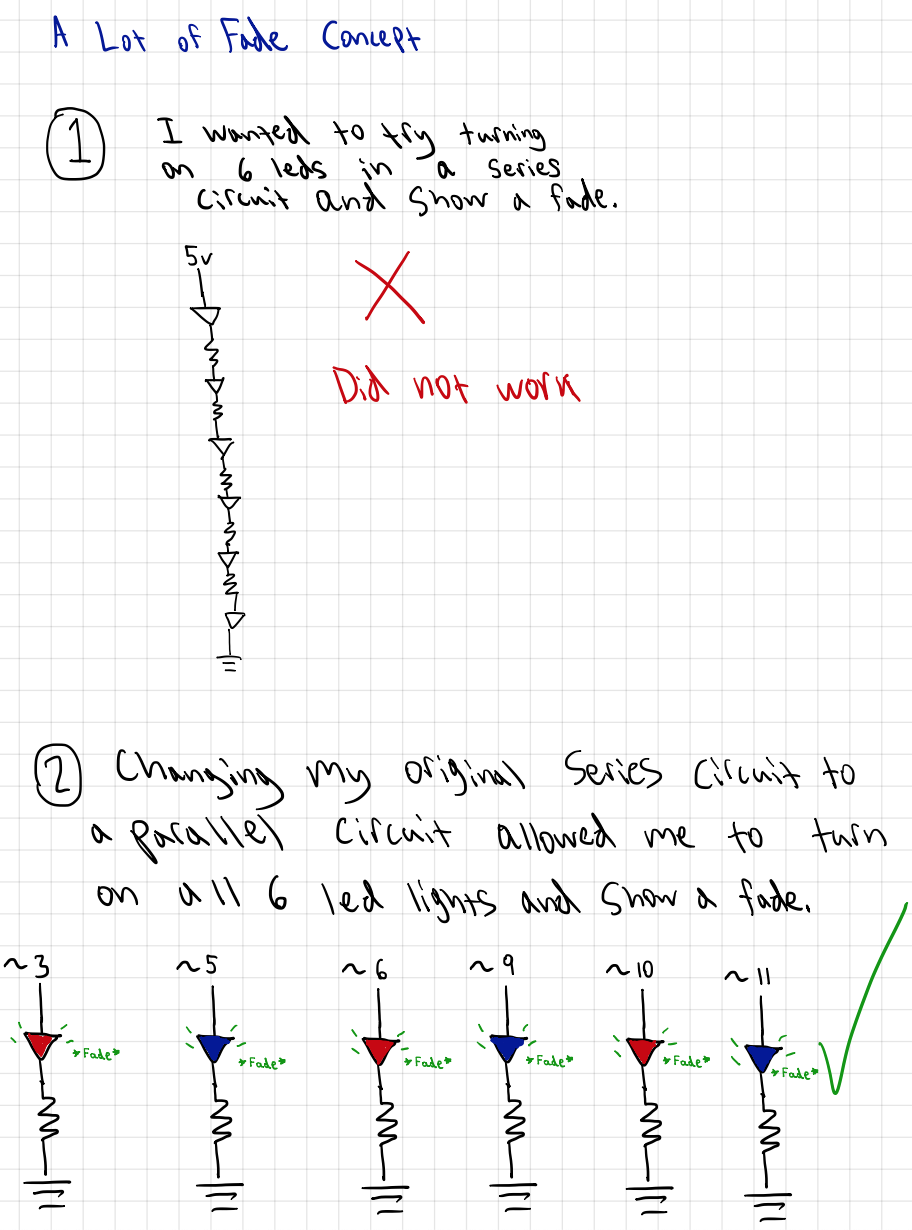 A Lot of Fade Concept
1 I wanted to try turning
on 6 leds in a series
circuit and show a fade.
5v
Did not work
2 Changing my original series circuit to
a parallel circuit allowed me to turn
on all 6 led lights and show a fade.
~3 ~5 ~6 ~9 ~10 ~11
*Fade* *Fade* *Fade* *Fade* *Fade* *Fade*